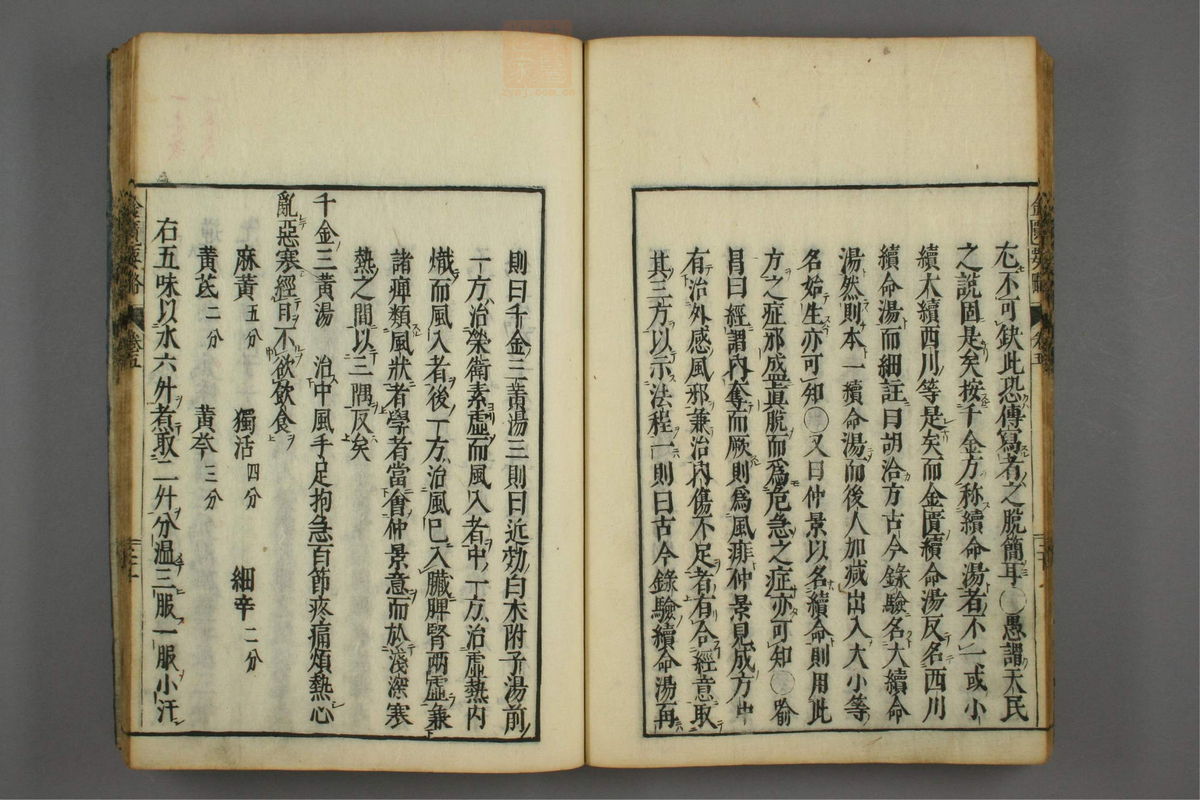 尤不可缺此恐傳寫者之脱簡耳○愚謂天民
之說固是矣按千金方称續命湯者不一或小
續大續西川等是矣而金匱續命湯反名西川
續命湯而細註曰胡洽方古今錄驗名大續命
湯然則本一續命湯而後人加减出入大小等
名始生亦可知○又曰仲景以名續命則用此
方之症邪盛真脱而為危急之症亦可知○喻
昌曰經謂内奪而厥則為風痱仲景見成方中
有治外感風邪兼治内傷不足者有合經意取
其三方以示法程一則曰古今錄驗續命湯再
則曰千金三黄湯三則曰近効白术附子湯前
一方治榮衛素虚而風入者中一方治虚熱内
熾而風入者後一方治風已入臟脾腎兩虚兼
諸痺類風狀者學者當會仲景意而於淺深寒
熱之間以三隅反矣
千金三黄湯 治中風手足拘急百節疼痛煩熱心
亂惡寒經日不欲飲食
麻黄五分 獨活四分 細辛二分
黄芪二分 黄芩三分
右五味以水六升煮取二升分温三服一服小汗
金匱要略 卷五